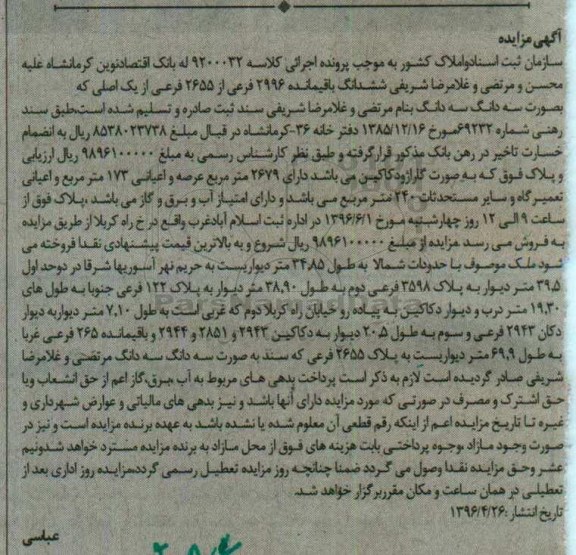 آگهی مزایده
سازمان ثبت اسنادواملاک کشور به موجب پرونده اجرائی کلاسه ۹۲۰۰۰۳۲ له بانک اقتصادنوین کرمانشاه علیه
محسن و مرتضی و غلامرضا شریفی ششدانگ باقیمانده ۲۹۹۶ فرعی از ۲۶۵۵ فرعی از یک اصلی که
بصورت سه دانگ سه دانگ بنام مرتضی و غلامرضا شریفی سند ثبت صادره و تسلیم شده است،طبق سند
رهنی شماره ۶۹۲۳۲مورخ ۱۳۸۵/۱۲/۱۶ دفتر خانه ۳۶-کرمانشاه در قبال مبلغ ۸۵۳۸۰۲۳۷۳۸ ریال به انضمام
خسارت تاخیر در رهن بانک مذکور قرار گرفته و طبق نظر کارشناس رسمی به مبلغ ۹۸۹۶۱۰۰۰۰۰ ریال ارزیابی
و پلاک فوق که به صورت گاراژودکاکین می باشد دارای ۲۶۷۹ متر مربع عرصه و اعیانی ۱۷۳ متر مربع و اعیانی
تعمیر گاه و سایر مستحدثات ۲۴۰ متر مربع می باشد و دارای امتیاز آب و برق و گاز می باشد ،پلاک فوق از
ساعت ۹ الی ۱۲ روز چهارشنبه مورخ ۱۳۹۶/۶/۱ در اداره ثبت اسلام آبادغرب واقع در خ راه کربلا از طریق مزایده
به فروش می رسد مزایده از مبلغ ۹۸۹۶۱۰۰۰۰۰ ریال شروع و به بالاترین قیمت پیشنهادی نقدا فروخته می
شود ملک موصوف با حدودات شمالا به طول ۳۴،۸۵ متر دیواریست به حریم نهر آسوریها شرقا در دوحد اول
۳۹،۵ متر دیوار به پلاک ۳۵۹۸ فرعی دوم به طول ۳۸،۹۰ متر دیوار به پلاک ۱۲۲ فرعی جنوبا به طول های
۱۹،۳۰ متر درب و دیوار دکاکین به پیاده رو خیابان راه کربلا دوم که غربی است به طول ۷،۱۰ متر دیواربه دیوار
دکان ۲۹۴۳ فرعی و سوم به طول ۲۰،۵ دیوار به دکاکین ۲۹۴۳ و ۲۸۵۱ و ۲۹۴۴ و باقیمانده ۲۶۵ فرعی غربا
به طول ۶۹،۹ متر دیواریست به پلاک ۲۶۵۵ فرعی که سند به صورت سه دانگ سه دانگ مرتضی و غلامرضا
شریفی صادر گردیده است لازم به ذکر است پرداخت بدهی های مربوط به آب ،برق،گاز اعم از حق انشعاب ویا
حق اشترک و مصرف در صورتی که مورد مزایده دارای آنها باشد و نیز بدهی های مالیاتی و عوارض شهرداری و
غیره تا تاریخ مزایده اعم از اینکه رقم قطعی آن معلوم شده یا نشده باشد به عهده برنده مزایده است و نیز در
صورت وجود مازاد ،وجوه پرداختی بابت هزینه های فوق از محل مازاد به برنده مزایده مسترد خواهد شدونیم
عشر وحق مزایده نقدا وصول می گردد ضمنا چنانچه روز مزایده تعطیل رسمی گردد،مزایده روز اداری بعد از
تعطیلی در همان ساعت و مکان مقرربرگزار خواهد شد.
تاریخ انتشار :۱۳۹۶/۴/۲۶
عباسی
ParsNamadData